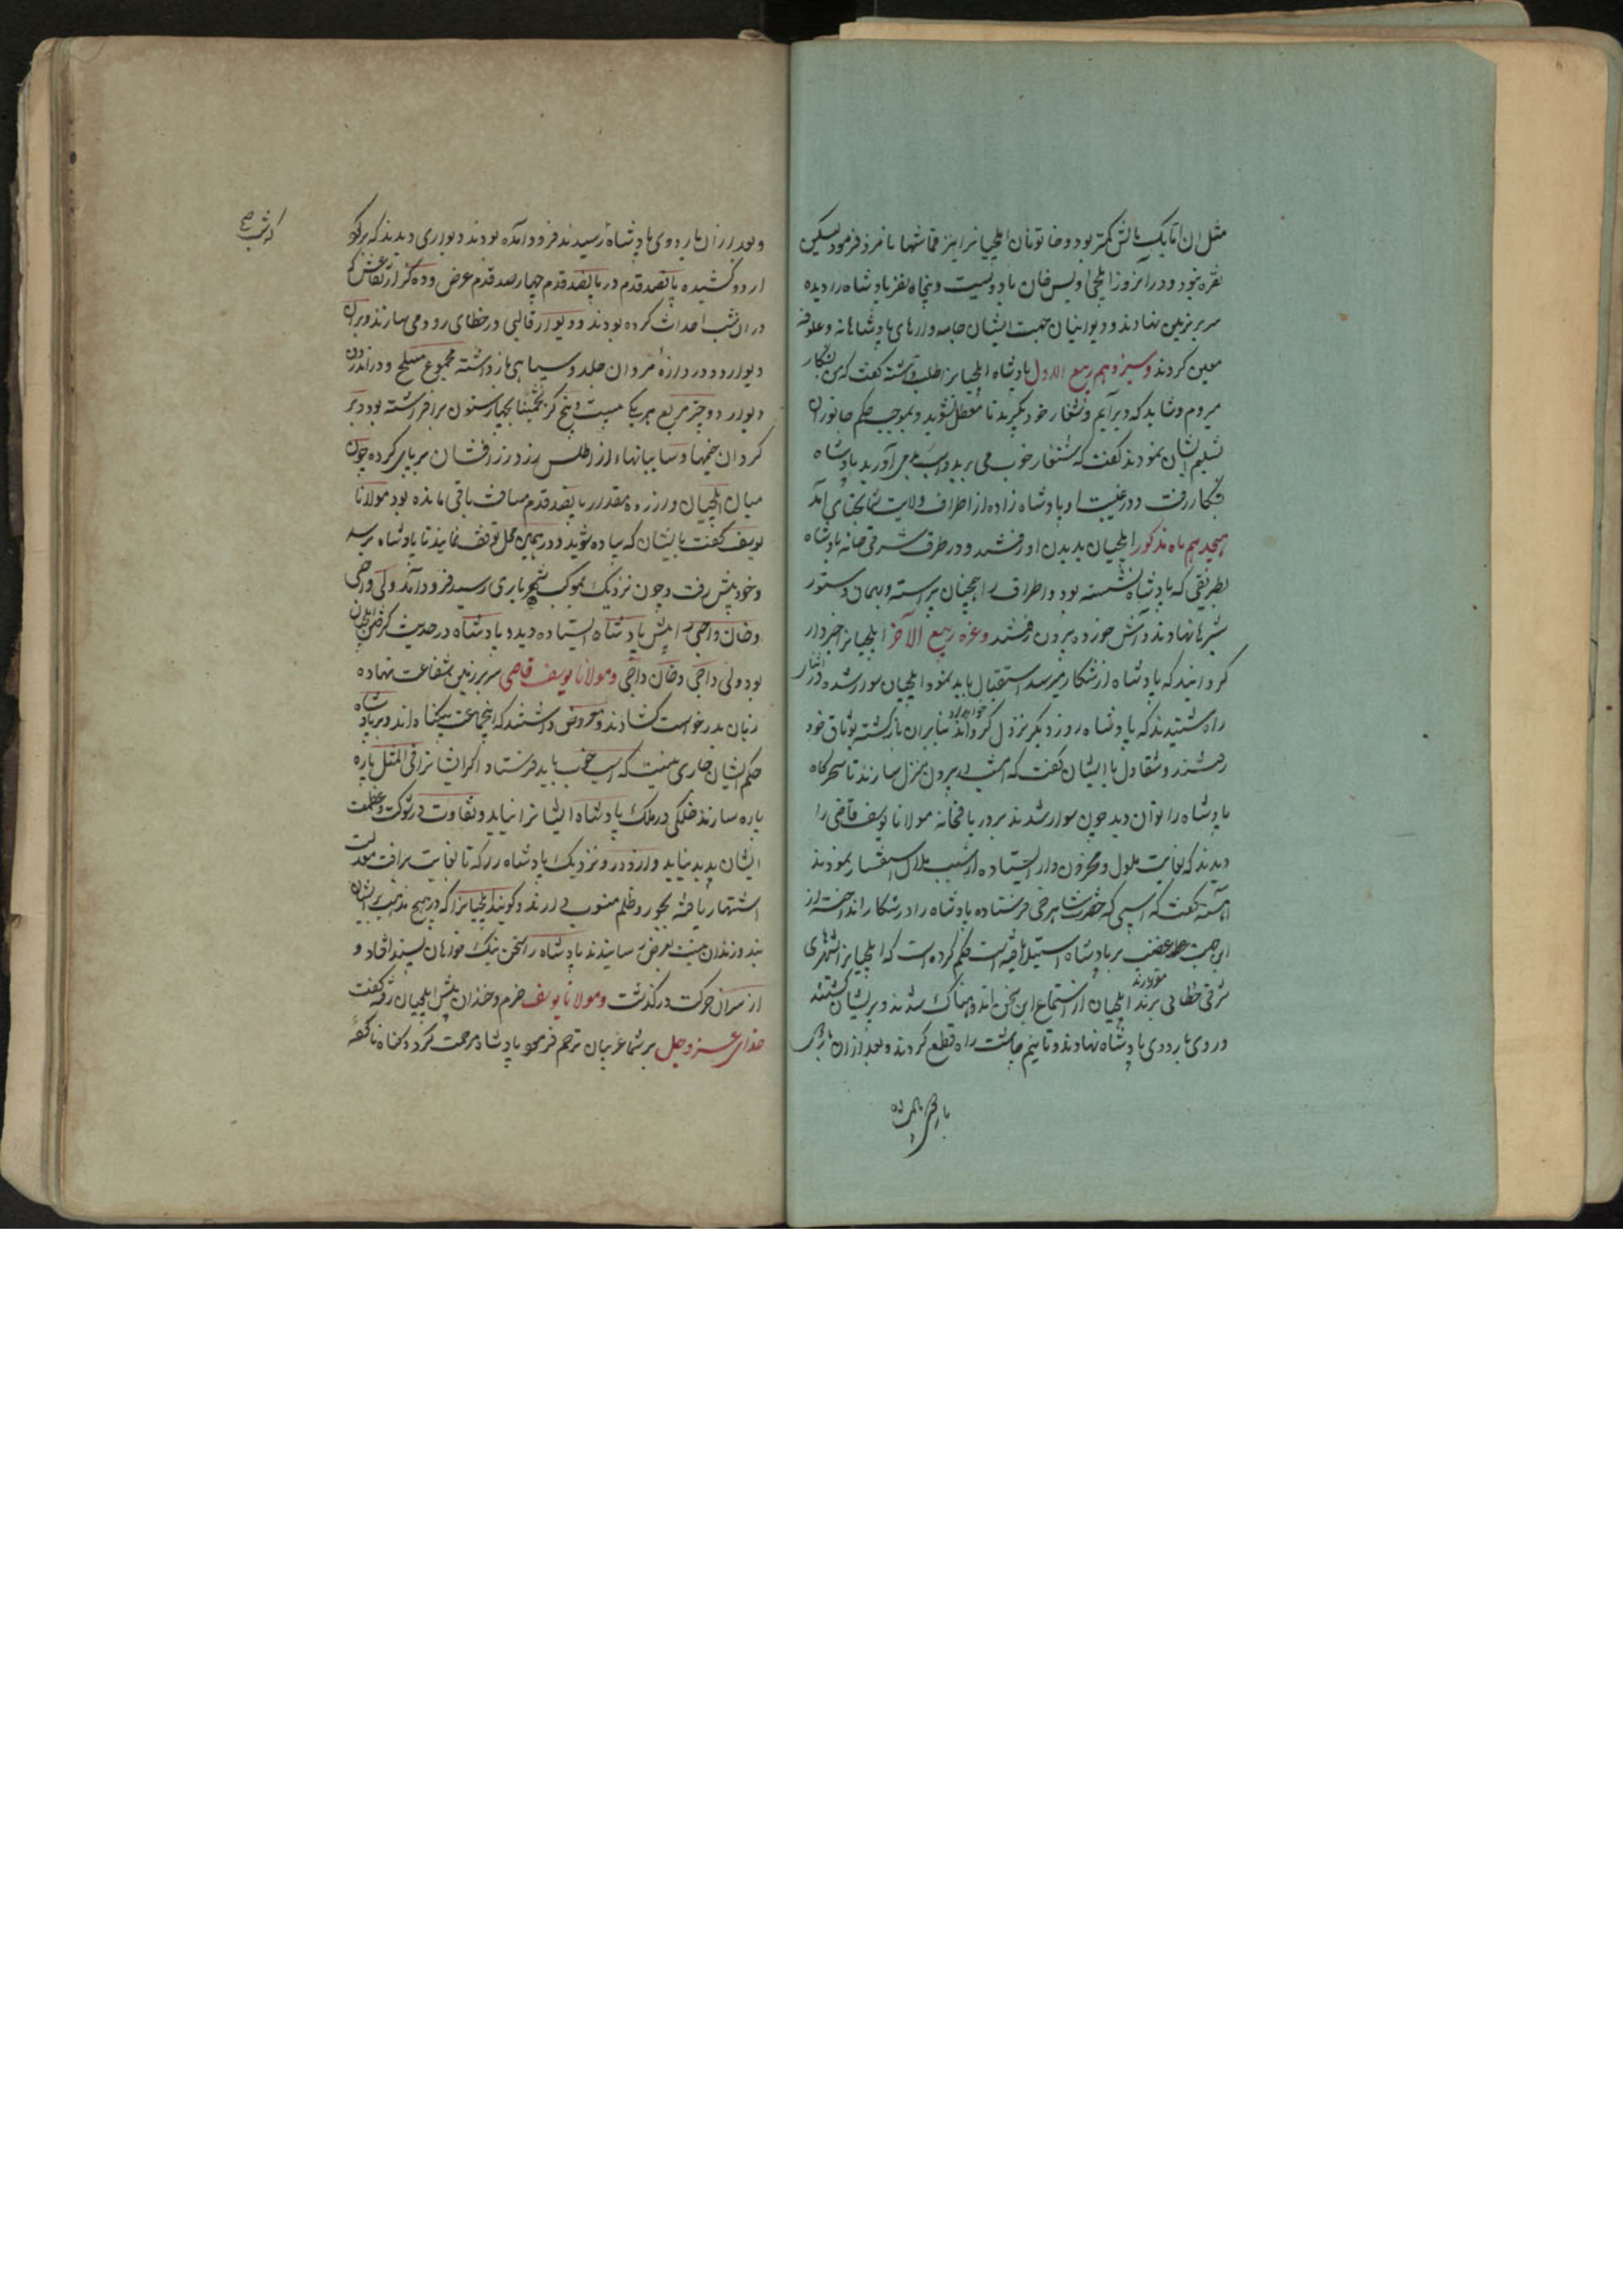 مثل آن اتابک بالش کمتر بود و خاتونان ایلچیانرا نیز قماشها نامزد فرمود لیکن
نقره نبود و در آنروز ایلچی اویس خان با دویست و پنجاه نفر پادشاه را دیده
سر بر زمین نهادند و دیوانیان جهت ایشان جامه وارهای پادشاهانه و علوفه
معین کردند و سیزدهم ربیع الاول پادشاه ایلچیانرا طلب داشته گفت که من بشکار
میروم و شاید که دیر آیم شنقار خود بگیرید تا معطل نشوید و بموجب حکم جانوران
تسلیم ایشان نمودند گفت که شنقار خوب می برید و اسب بد می آورید پادشاه
بشکار رفت و در غیبت او پادشاه زاده از اطراف ولایت بختای آمد
هیجدهم ماه مذکور ایلچیان بدیدن او رفتند و در طرف شرقی خانه پادشاه
بطریقی که پادشاه نشسته بود و اطراف را همچنان آراسته و بهمان دستور
شیرها نهادند و آش خورده بیرون رفتند و غره ربیع الآخر ایلچیانرا خبردار
گردانیدند که پادشاه از شکار میرسد استقبال باید نمود ایلچیان سوار شده در اثنا
راه شنیدند که پادشاه روز دیگر نزول خواهد کرد بنابران بازگشته بوثاق خود
رفتند و شقاول با ایشان گفت که امشب بیرون منزل سازند تا سحرگاه
پادشاه را توان دید چون سوار شدند بر در یامخانه مولانا یوسف قاضی را
دیدند که بغایت ملول و محزون وار ایستاده از سبب ملال استفسار نمودند
آهسته گفت که اسپی که حضرت شاهرخی فرستاده پادشاه را در شکار انداخته از
این جهت غضب بر پادشاه استیلا یافته است حکم کرده است که ایلچیانرا بشهرهای
شرقی خطای برند مقید دارند ایلچیان از استماع این سخن اندوهناک شدند و پریشان گشتند
و روی باردوی پادشاه نهادند و تا نیم چاشت راه قطع کردند و بعد از آن باردوی
و بعد از آن باردوی پادشاه رسیدند فرود آمده بودند دیواری دیدند که بر گرد
اردو کشیده پانصد قدم در پانصد قدم چهارصد قدم عرض و ده گز ارتفاعش که
در آن شب احداث کرده بودند و دیوار قالبی در خطای زود می سازند و بر آن
دیوار دو دروازه مردان جلد و سپاهی بازداشته مجموع مسلح و در اندرون
دیوار دو چتر مربع هر یک بیست و پنج گز تخمینا بچهار ستون برافراشته بود و بر
گرد آن خیمها و سایبانها از اطلس زرد زرافشان بر پای کرده چون
میان ایلچیان و اردو مقدار پانصد قدم مسافت باقی مانده بود مولانا
یوسف گفت با ایشان که پیاده شوید و در همین محل توقف نمایند تا پادشاه برسد
و خود پیش رفت و چون نزدیک بموکب شهریاری رسید فرود آمد و لی داجی
و خان داجی را پیش پادشاه ایستاده دید و پادشاه در حدیث گرفتن ایلچیان
بود و لی داجی و خان داجی و مولانا یوسف قاضی سر بر زمین بشفاعت نهاده
زبان بدرخواست گشادند و معروض داشتند که اینجماعت بیگناه اند و بر پادشاه
حکم ایشان جاری نیست که اسپ خوب باید فرستاد و اگر ایشانرا فی المثل پاره
پاره سازند خللی در ملک پادشاه ایشانرا نیاید و تفاوت در شوکت و عظمت
ایشان پدید نیاید و از دور و نزدیک پادشاه را که تا بغایت برافت و معدلت
اشتهار یافته بجور و ظلم منسوب دارند و گویند ایلچیانرا که در هیچ مذهب بر ایشان
بند و زندان نیست بعرض رسانیدند پادشاه را سخن نیک خواهان پسند افتاد و
از سر آن حرکت درگذشت و مولانا یوسف خرم و خندان پیش ایلچیان رفته گفت
خدای عز و جل بر شما غریبان ترحم فرمود پادشاه مرحمت کرد و گناه ناکرده